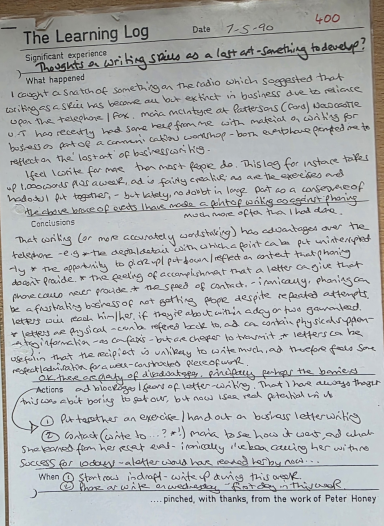 400
The Learning Log Date 7-5-90
Significant experience
Thoughts on writing skills as a lost art - something to develop?
What happened
I caught a snatch of something on the radio which suggested that
writing as a skill has become all but extinct in business due to reliance
upon the telephone / fax. Moira McIntyre at Pattersons (Ford) Newcastle
U.T has recently had some help from me with material on writing for
business as part of a communication workshop - both events have prompted me to
reflect on the 'lost art' of business writing.
I feel I write far more than most people do. This log for instance takes
up 1,000 words plus a week, and is fairly creative, as are the exercises and
handouts I put together, - but lately, no doubt in large part as a consequence of
the above brace of events I have made a point of writing as against phoning
much more often than I had done.
Conclusions
That writing (or more accurately wordstaking) has advantages over the
telephone - e.g * the depth/detail with which a point can be put uninterrupted
-ly * the opportunity to pick up / put down / reflect on content that phoning
doesn't provide * the feeling of accomplishment that a letter can give that
phone could never provide * the speed of contact - ironically, phoning can
be a frustrating business of not getting people despite repeated attempts
letters will reach him/her, if they're about within a day or two guaranteed.
* letters are physical - can be refered back to, and can contain physical support-
-ing information - as can faxes - but are cheaper to transmit * letters can be
useful in that the recipient is unlikely to write much, and therefore feels some
respect/admiration for a well-constructed piece of work.
OK there are plenty of disadvantages, principally perhaps the barriers
Actions and blockages / fears of letter-writing. That I have always thought
this was a bit boring to set our, but now I see real potential in it
① Put together an exercise / hand out on business letter writing
② Contact (write to...? *!) Moira to see how it went, and what
she learned from her recent event - ironically I've been calling her with no
success for 10 days! - a letter would have reached her by now...
When ① Start now in draft - write up during this week.
② Phone or write on Wednesday - first day in this week
....pinched, with thanks, from the work of Peter Honey